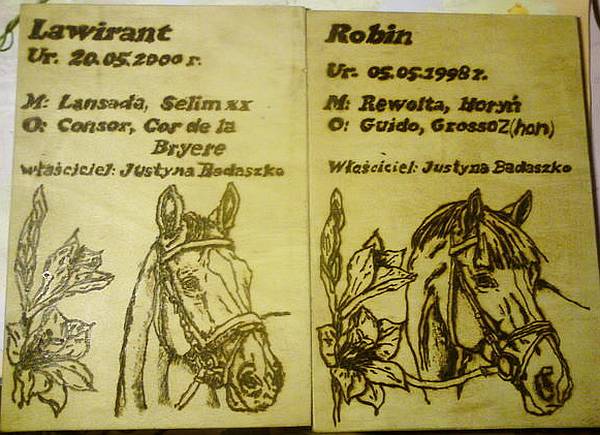 Lawirant
Ur. 20.05.2000 r.
M: Lansada, Selim xx
O: Consor, Cor de la
Bryere
właściciel: Justyna Badaszko
Robin
Ur. 05.05.1998 r.
M: Rewolta, Horyń
O: Guido, Grosso Z(han)
Właściciel: Justyna Badaszko